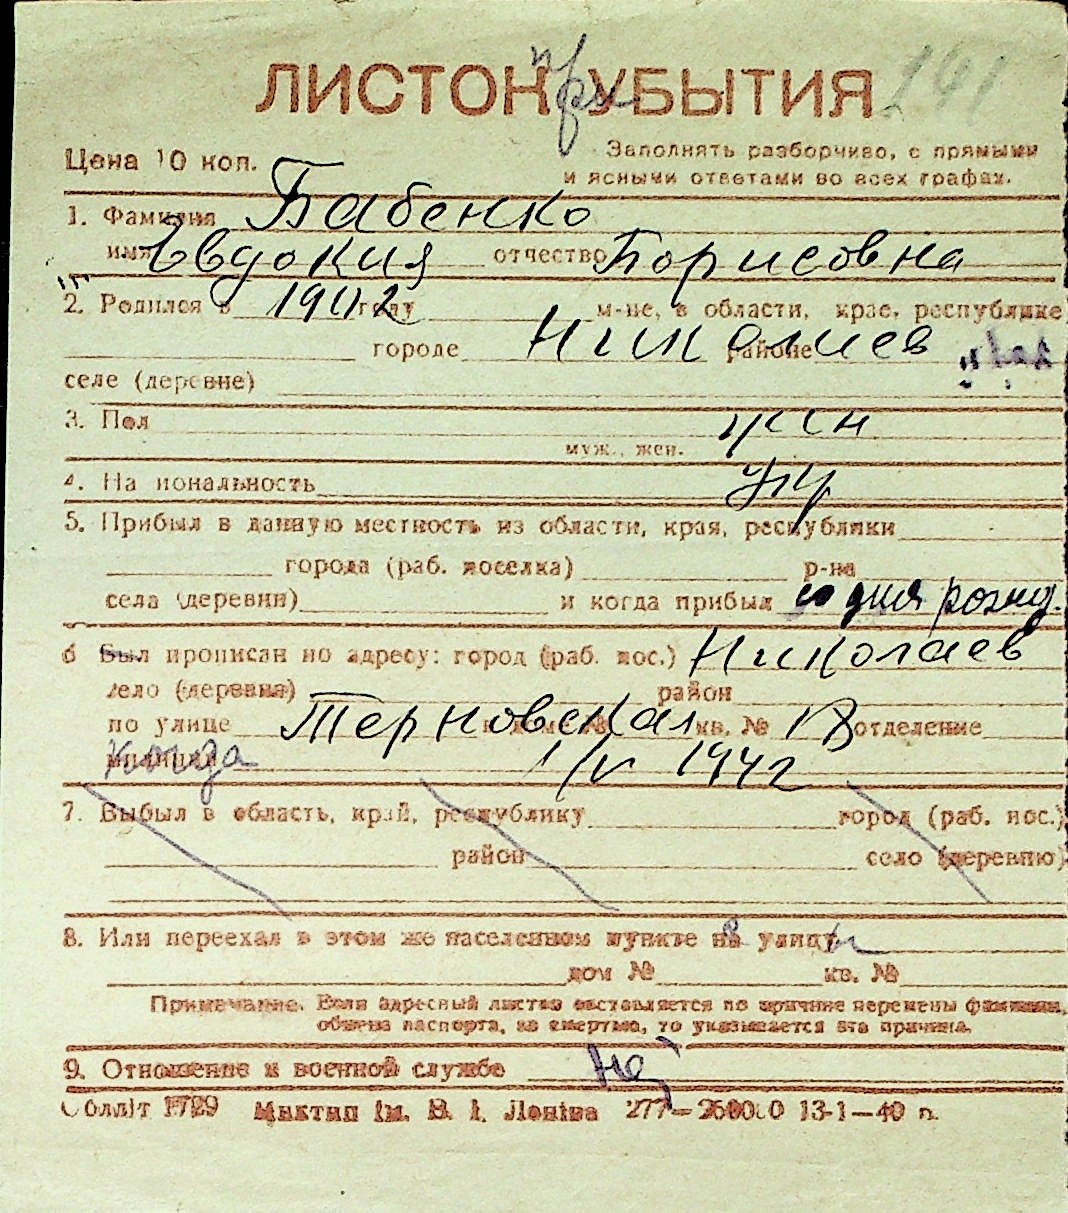 ЛИСТОК при УБЫТИЯ 241
Цена 10 коп.
Заполнять разборчиво, с прямыми
и ясными ответами во всех графах.
1. Фамилия Бабенко
имя Евдокия отчество Борисовна
2. Родился в 1902 году м-це, в области, крае, республике
городе Николаев районе
селе (деревне)
3. Пол жен
муж., жен.
4. На иональность укр
5. Прибыл в данную местность из области, края, республики
города (раб. поселка) р-на
села (деревни) и когда прибыл со дня рожд.
6 Был прописан по адресу: город (раб. пос.) Николаев
село (деревня) район
по улице Терновская кв. № 18 отделение
милиции когда 1/IV 1942
7. Выбыл в область, край, республику город (раб. пос.)
район село (деревню)
8. Или переехал в этом же населенном пункте на улицу
дом № кв. №
Примечание. Если адресный листок составляется по причине перемены фамилии,
обмена паспорта, за смертью, то указывается эта причина.
9. Отношение к военной службе
Обллiт 1729 Миктип iм. В. I. Ленiна 277—260000 13-1—40 п.